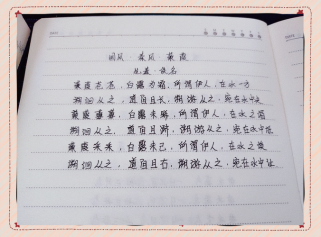 国风·秦风·蒹葭
先秦·佚名
蒹葭苍苍,白露为霜,所谓伊人,在水一方
溯洄从之,道阻且长,溯游从之,宛在水中央
蒹葭萋萋,白露未晞,所谓伊人,在水之湄
溯洄从之,道阻且跻,溯游从之,宛在水中坻
蒹葭采采,白露未已,所谓伊人,在水之涘
溯洄从之,道阻且右,溯游从之,宛在水中沚